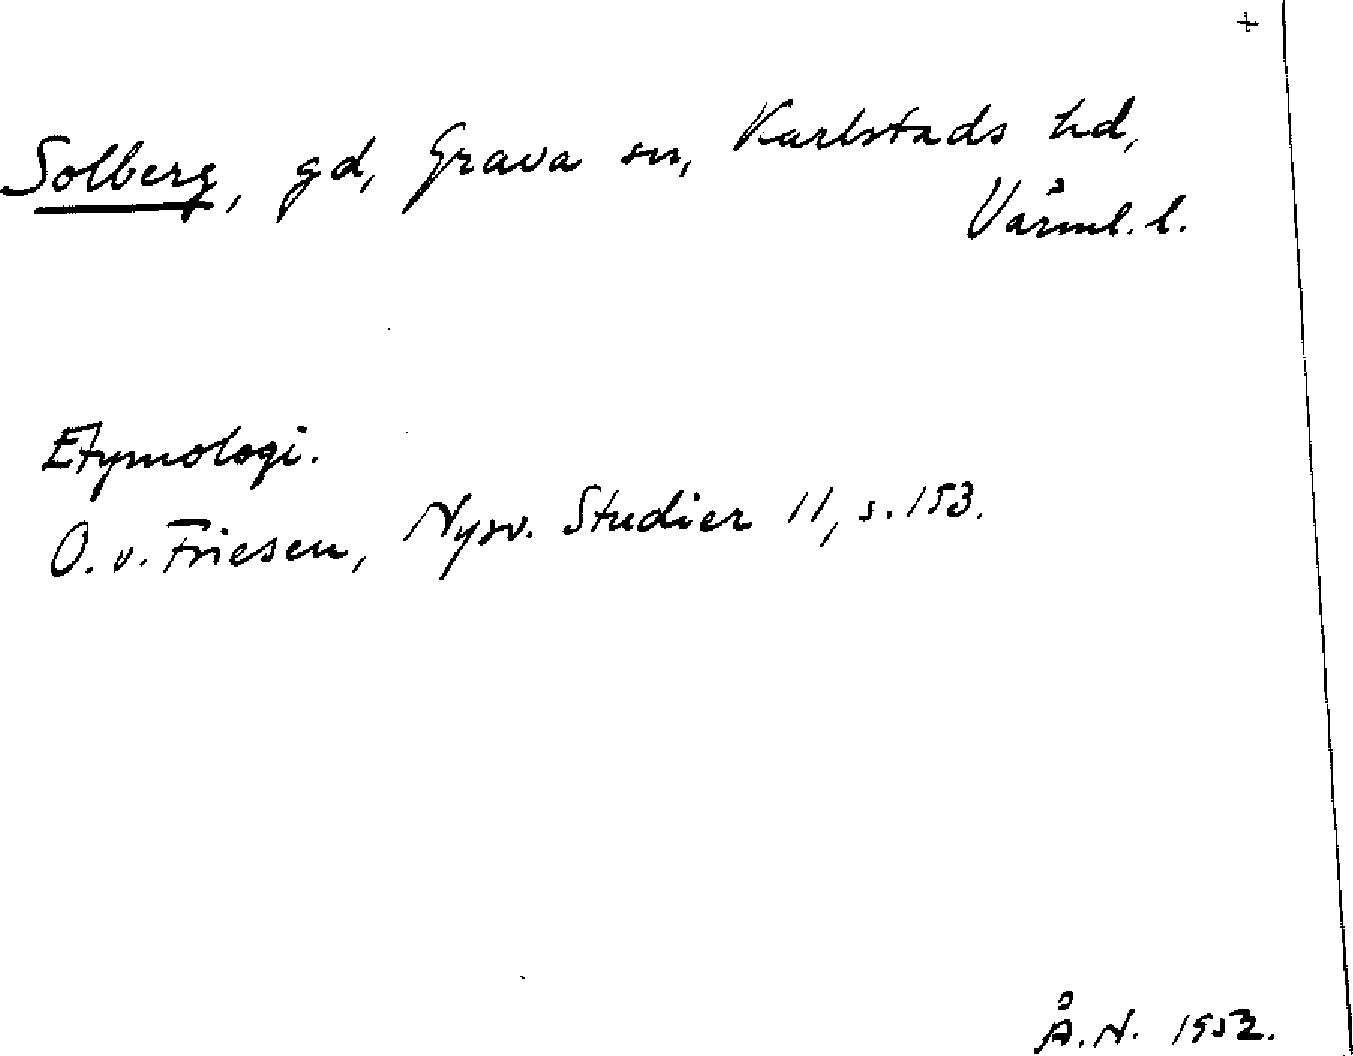 +
Solberg, gd, Grava sn, Karlstads hd,
Värml. l.
Etymologi.
O. v. Friesen, Nysv. Studier 11, s. 153.
Å. N. 1952.